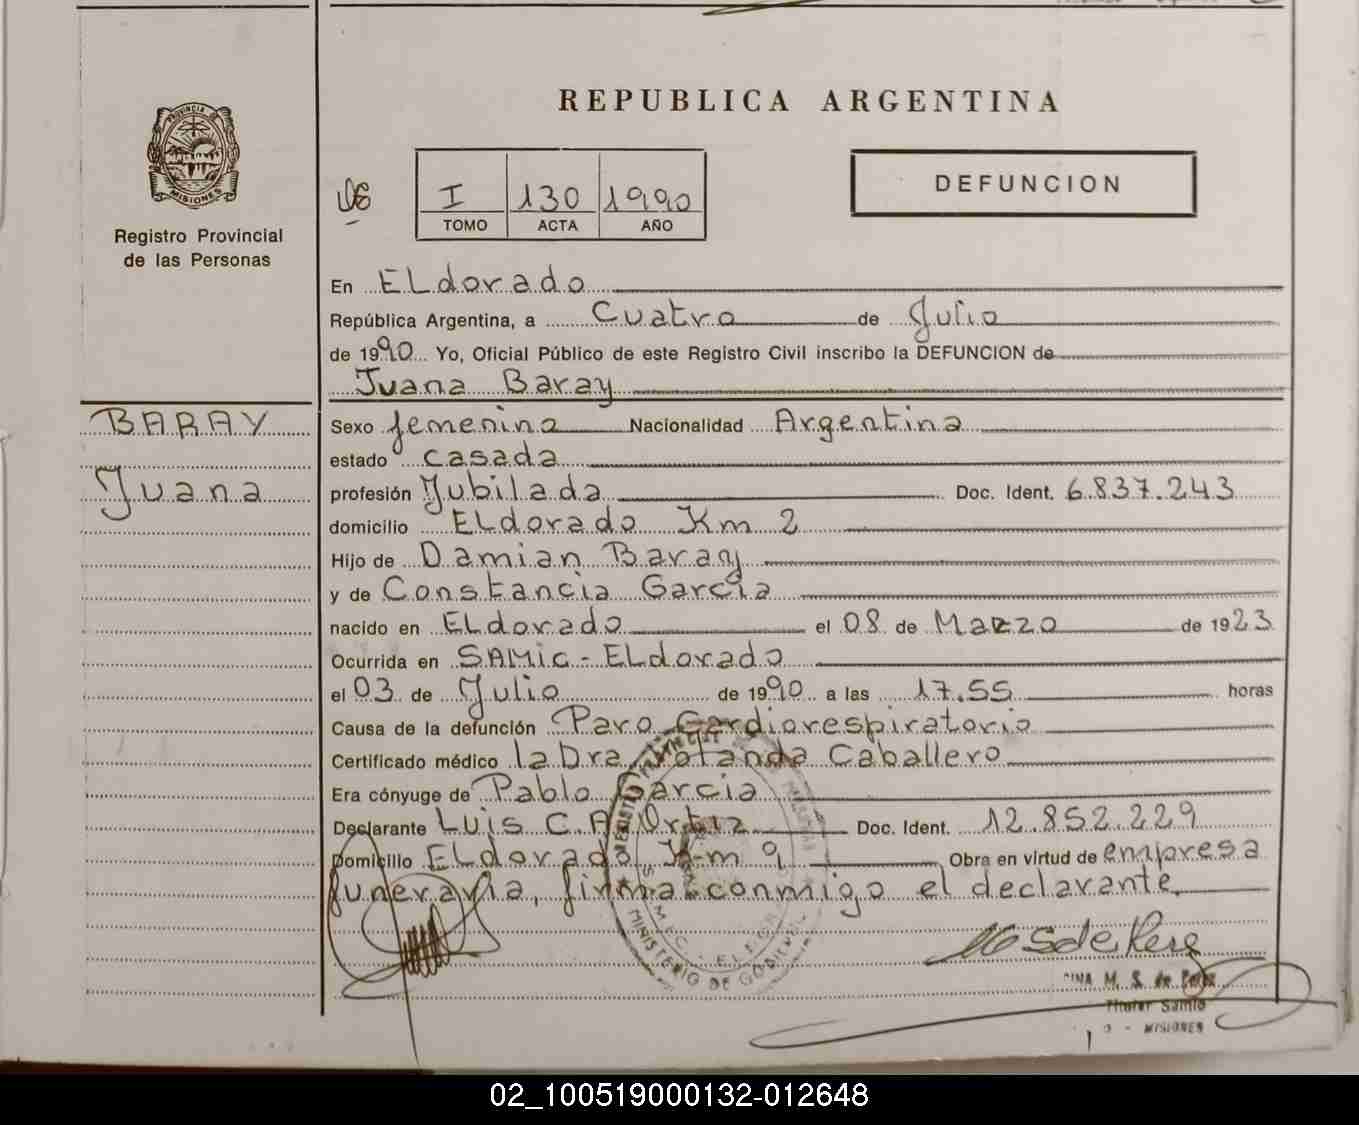 REPUBLICA ARGENTINA
PROVINCIA DE
MISIONES
Registro Provincial
de las Personas
I 130 1990
TOMO ACTA AÑO
DEFUNCION
En ELdorado
República Argentina, a Cuatro de Julio
de 1990 Yo, Oficial Público de este Registro Civil inscribo la DEFUNCION de
Juana Baray
BARAY
Juana
Sexo femenino Nacionalidad Argentina
estado casada
profesión Jubilada Doc. Ident. 6.837.243
domicilio ELdorado Km 2
Hijo de Damian Baray
y de Constancia Garcia
nacido en ELdorado el 08 de Marzo de 1923
Ocurrida en SAMIC - ELdorado
el 03 de Julio de 1990 a las 17.55 horas
Causa de la defunción Paro Cardiorespiratorio
Certificado médico la Dra Yolanda Caballero
Era cónyuge de Pablo Garcia
Declarante Luis C. A. Ortiz Doc. Ident. 12.852.229
Domicilio ELdorado Km 9 Obra en virtud de empresa
funeraria, firma conmigo el declarante.
MINISTERIO DE GOBIERNO
M. S. de
Titular
MISIONES
02_100519000132-012648